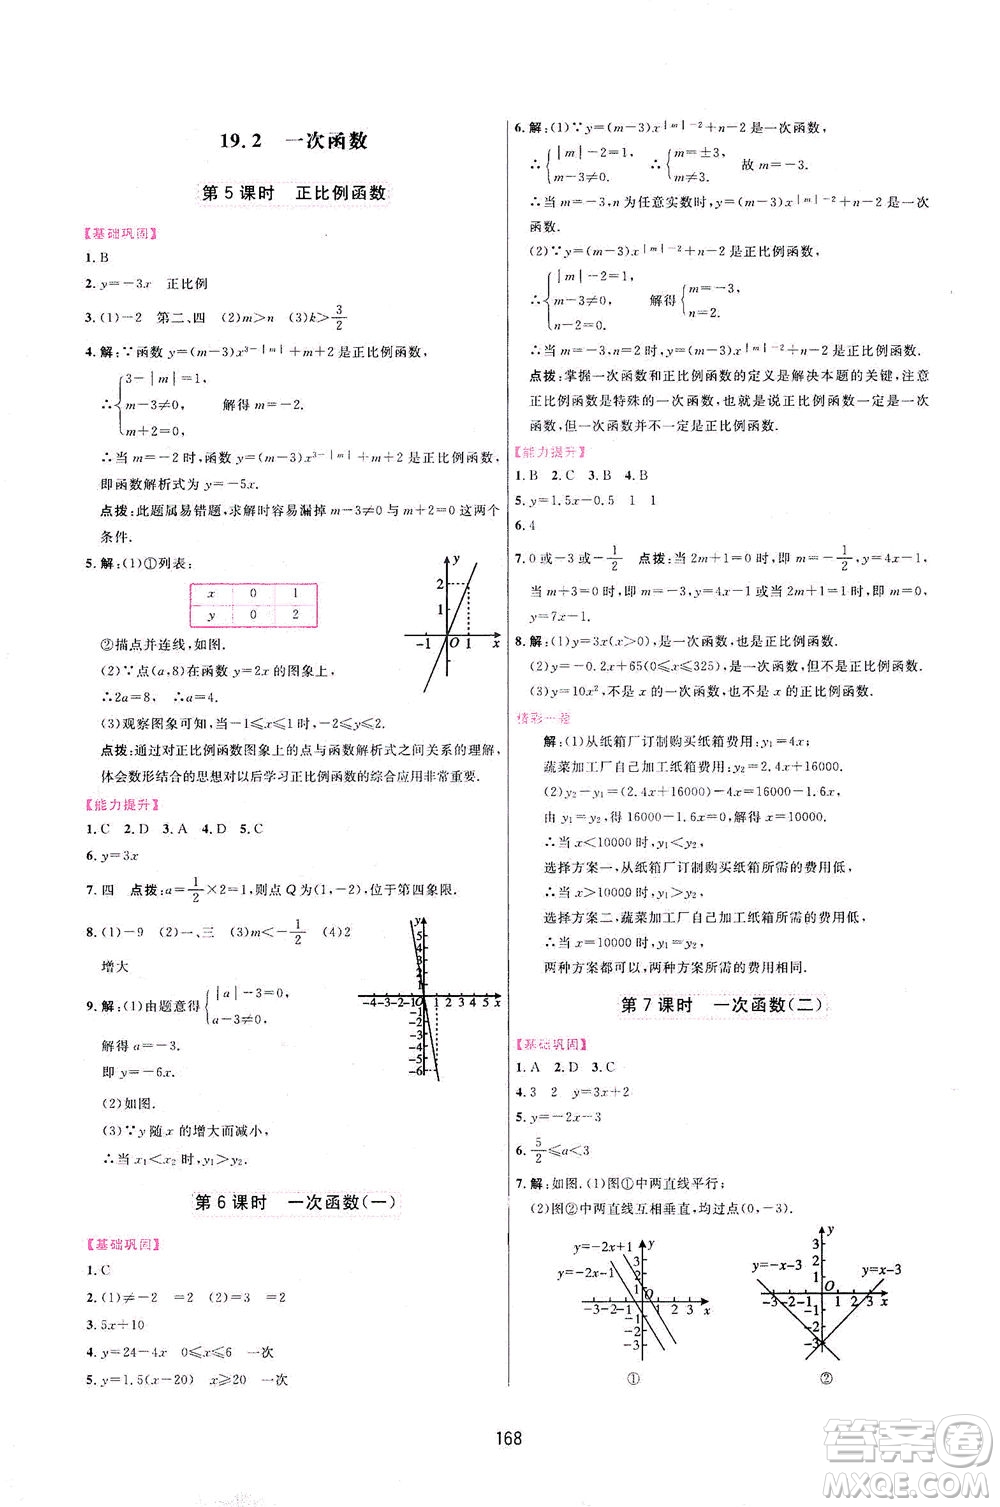 19.2 一次函数
第5课时 正比例函数
【基础巩固】
1. B
2. y=-3x 正比例
3. (1)-2 第二、四 (2)m>n (3)k>3/2
4. 解:∵函数 y=(m-3)x^{3-|m|}+m+2是正比例函数,
∴{3-|m|=1, m-3≠0, m+2=0. 解得 m=-2.
∴当 m=-2时,函数 y=(m-3)x^{3-|m|}+m+2 是正比例函数,
即函数解析式为 y=-5x.
点拨:此题属易错题,求解时容易漏掉 m-3≠0 与 m+2=0 这两个
条件.
5. 解:(1)①列表:
x 0 1
y 0 2
y 2 1 -1 O 1 x
②描点并连线,如图.
(2)∵点(a,8)在函数 y=2x 的图象上,
∴2a=8, ∴a=4.
(3)观察图象可知,当-1≤x≤1时,-2≤y≤2.
点拨:通过对正比例函数图象上的点与函数解析式之间关系的理解,
体会数形结合的思想对以后学习正比例函数的综合应用非常重要.
【能力提升】
1. C 2. D 3. A 4. D 5. C
6. y=3x
7. 四 点拨:a=1/2×2=1,则点 Q 为(1,-2),位于第四象限.
8. (1)-9 (2)一、三 (3)m<-1/2 (4)2
增大
9. 解:(1)由题意得{|a|-3=0, a-3≠0.
解得 a=-3.
即 y=-6x.
(2)如图.
(3)∵y 随 x 的增大而减小,
∴当 x₁<x₂ 时,y₁>y₂.
y 5 4 3 2 1 -4-3-2-1 O 1 2 3 4 5 x -1 -2 -3 -4 -5 -6
第6课时 一次函数(一)
【基础巩固】
1. C
2. (1)≠-2 =2 (2)=3 =2
3. 5x+10
4. y=24-4x 0≤x≤6 一次
5. y=1.5(x-20) x≥20 一次
6. 解:(1)∵y=(m-3)x^{|m|-2}+n-2是一次函数,
∴{|m|-2=1, m-3≠0. ∴{m=±3, m≠3. 故 m=-3.
∴当 m=-3,n为任意实数时,y=(m-3)x^{|m|-2}+n-2 是一次
函数.
(2)∵y=(m-3)x^{|m|-2}+n-2是正比例函数,
∴{|m|-2=1, m-3≠0, n-2=0. 解得{m=-3, n=2.
∴当 m=-3,n=2 时,y=(m-3)x^{|m|-2}+n-2 是正比例函数.
点拨:掌握一次函数和正比例函数的定义是解决本题的关键,注意
正比例函数是特殊的一次函数,也就是说正比例函数一定是一次
函数,但一次函数并不一定是正比例函数.
【能力提升】
1. B 2. C 3. B 4. B
5. y=1.5x-0.5 1 1
6. 4
7. 0或-3或-1/2 点拨:当 2m+1=0时,即 m=-1/2,y=4x-5;
当 m+3=1时,即 m=-2,y=x-5;当 2m+1=1时,即 m=0,
y=7x-1.
8. 解:(1)y=3x(x>0),是一次函数,也是正比例函数.
(2)y=-0.2x+65(0≤x≤325),是一次函数,但不是正比例函数.
(3)y=10x²,不是 x 的一次函数,也不是 x 的正比例函数.
精彩一题
解:(1)从纸箱厂订制购买纸箱费用:y₁=4x;
蔬菜加工厂自己加工纸箱费用:y₂=2.4x+16000.
(2)y₂-y₁=(2.4x+16000)-4x=16000-1.6x,
由 y₁=y₂,得 16000-1.6x=0,解得 x=10000.
∴当 x<10000时,y₁<y₂,
选择方案一,从纸箱厂订制购买纸箱所需的费用低,
∴当 x>10000时,y₁>y₂,
选择方案二,蔬菜加工厂自己加工纸箱所需的费用低,
∴当 x=10000时,y₁=y₂,
两种方案都可以,两种方案所需的费用相同.
第7课时 一次函数(二)
【基础巩固】
1. A 2. D 3. C
4. 3 2 y=3x+2
5. y=-2x-3
6. 5/2≤a<3
7. 解:如图.(1)图①中两直线平行;
(2)图②中两直线互相垂直,均过点(0,-3).
y=-2x+1 y=-2x-1 y 3 2 1 O -3-2-1 1 2 3 x -1 -2 -3
y=-x-3 y=x-3 y 3 2 1 O -3-2-1 1 2 3 x -1 -2 -3
① ②
168
答案圈
MXQE.COM